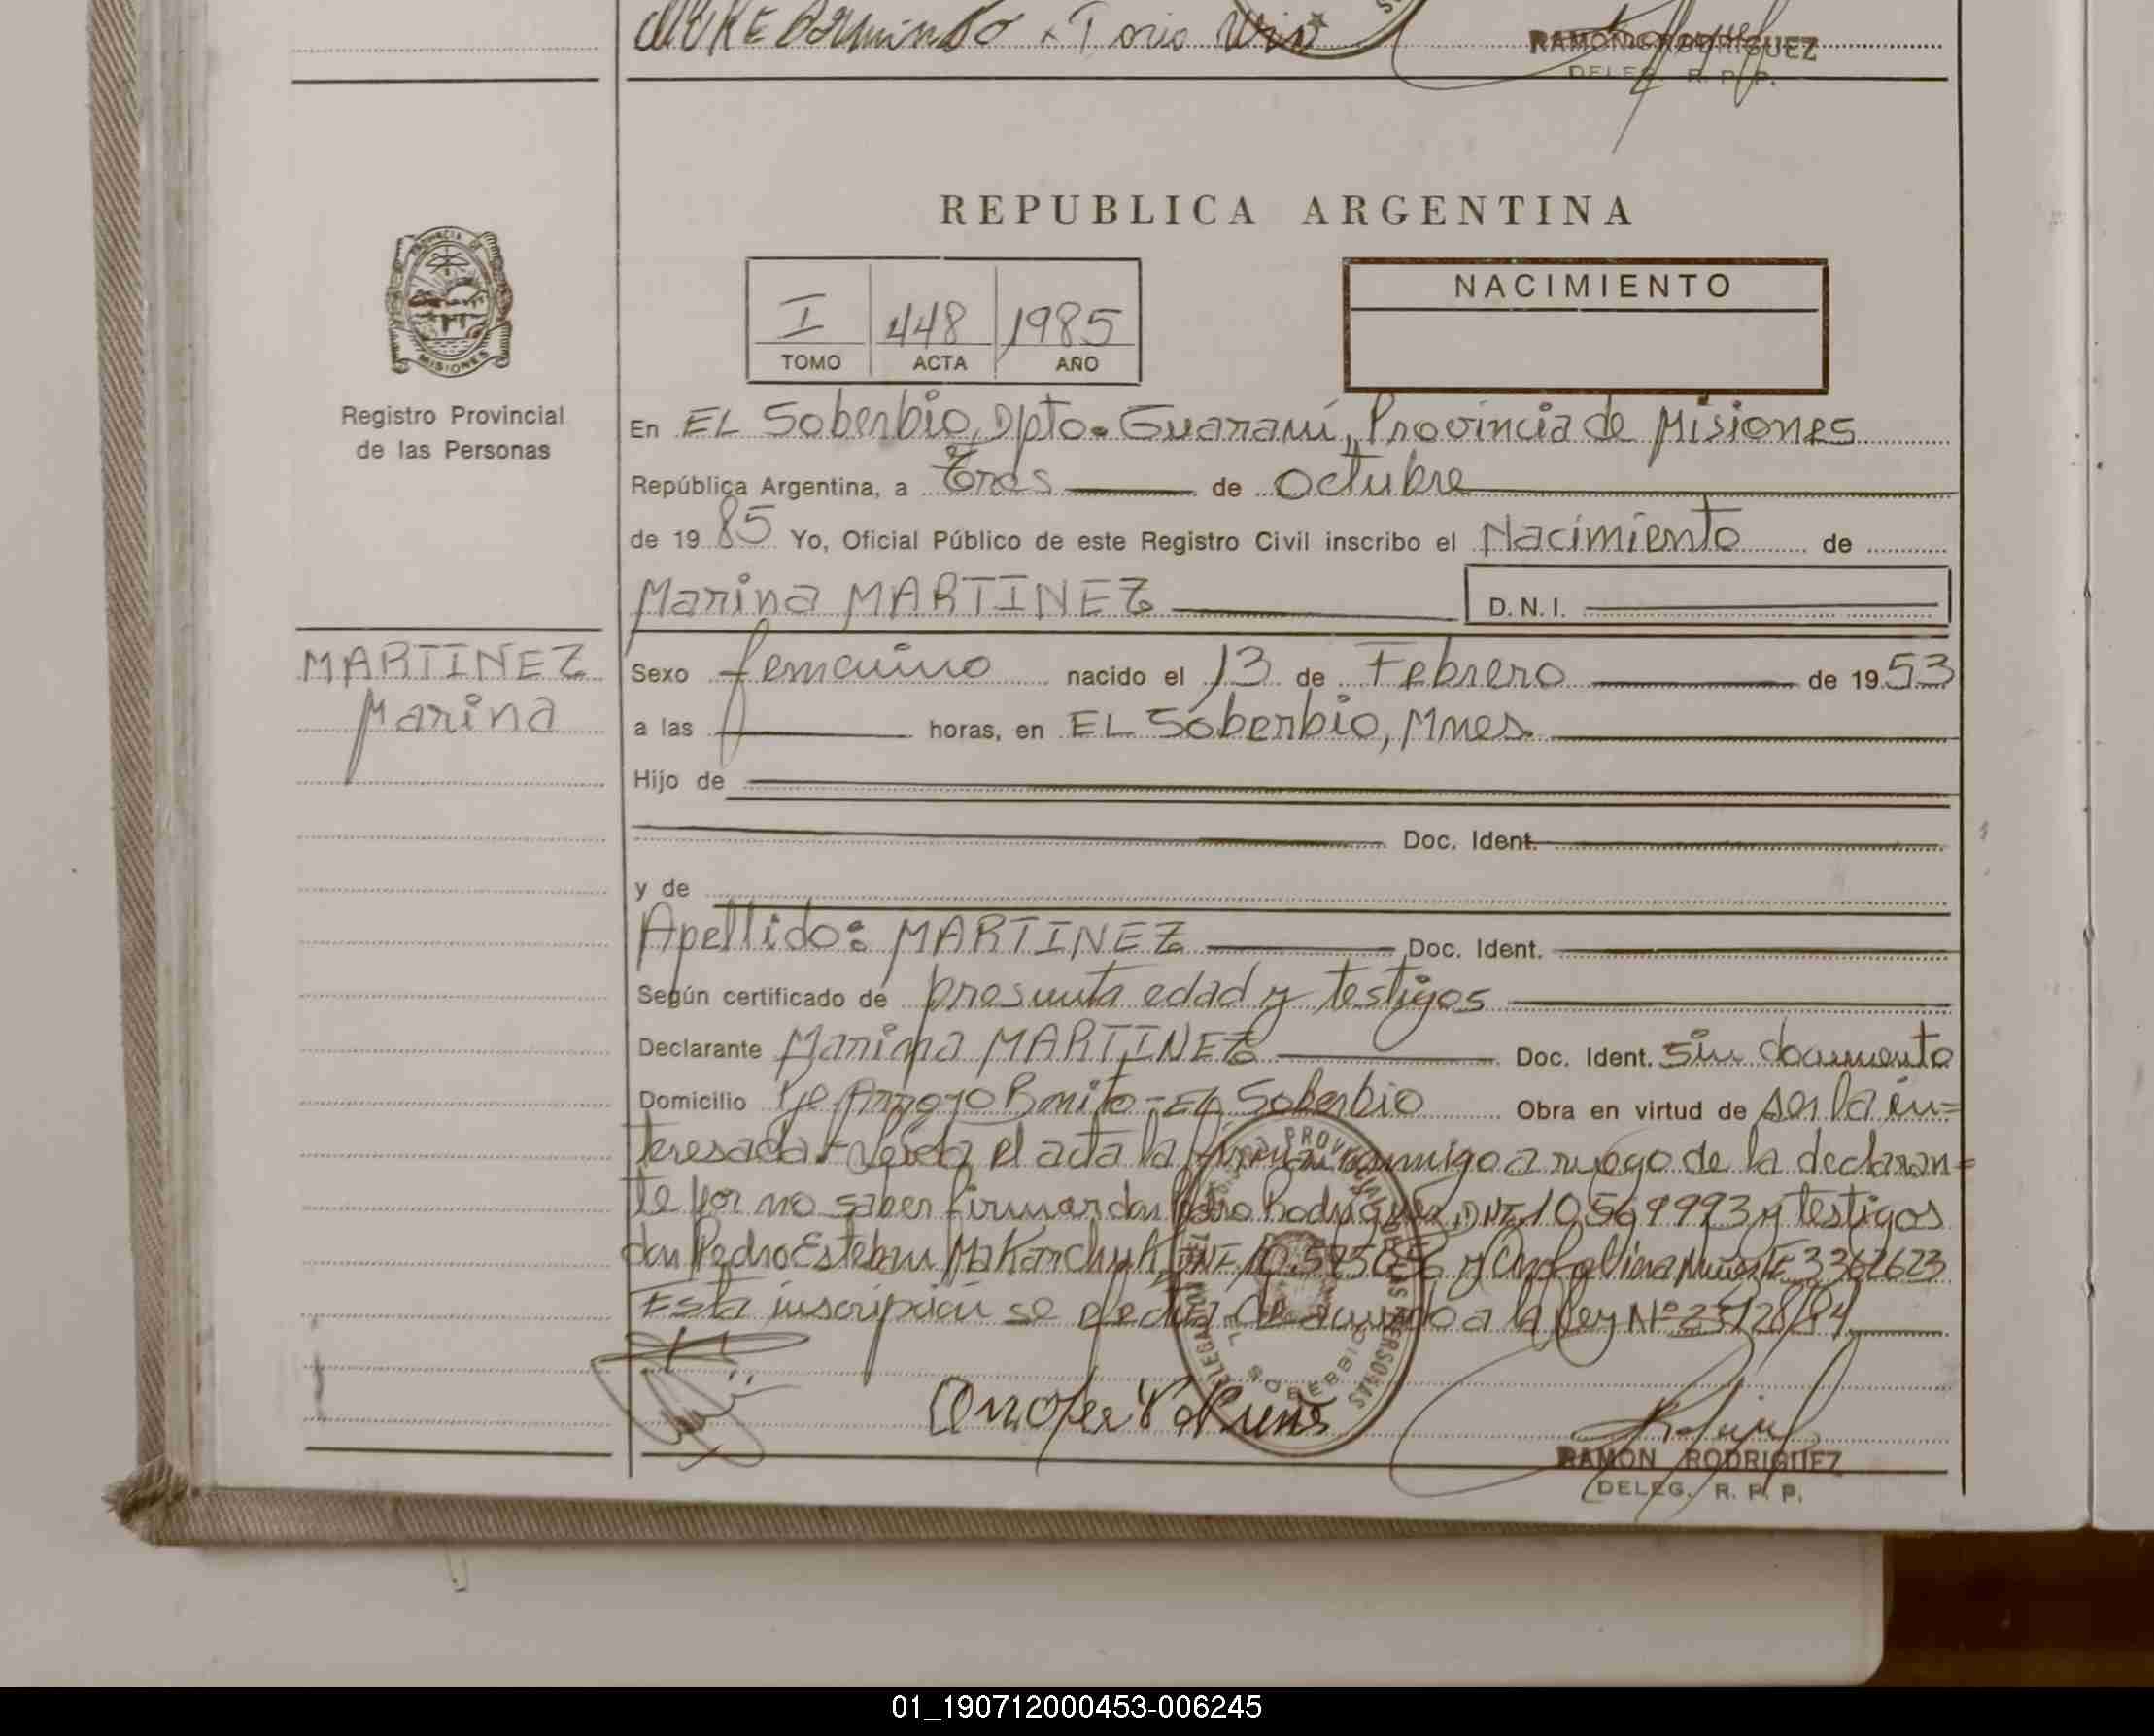 Domingo
RAMON RODRIGUEZ
DELEG. R. P. P.
REPUBLICA ARGENTINA
PROVINCIA DE MISIONES
Registro Provincial
de las Personas
I 448 1985
TOMO ACTA AÑO
NACIMIENTO
En EL Soberbio, Dpto. Guaraní, Provincia de Misiones
República Argentina, a Tres de octubre
de 1985 Yo, Oficial Público de este Registro Civil inscribo el Nacimiento de
Marina MARTINEZ D.N.I.
MARTINEZ
Marina
Sexo femenino nacido el 13 de Febrero de 1953
a las horas, en EL Soberbio, Mnes.
Hijo de
Doc. Ident.
y de
Apellido: MARTINEZ Doc. Ident.
Según certificado de presunta edad y testigos
Declarante Marina MARTINEZ Doc. Ident. Sin documento
Domicilio Pje Arroyo Bonito - EL Soberbio Obra en virtud de ser la in=
teresada.- Leida el acta la firman conmigo a ruego de la declaran=
te por no saber firmar don Pedro Rodriguez, DNI. 10.569993 y testigos
don Pedro Esteban Makarchuk, DNI y 3362623
Esta inscripción se efectua de acuerdo a la Ley Nº 23128/84
DELEGACION PROVINCIAL PERSONAS
EL SOBERBIO
RAMON RODRIGUEZ
DELEG. R. P. P.
01_190712000453-006245